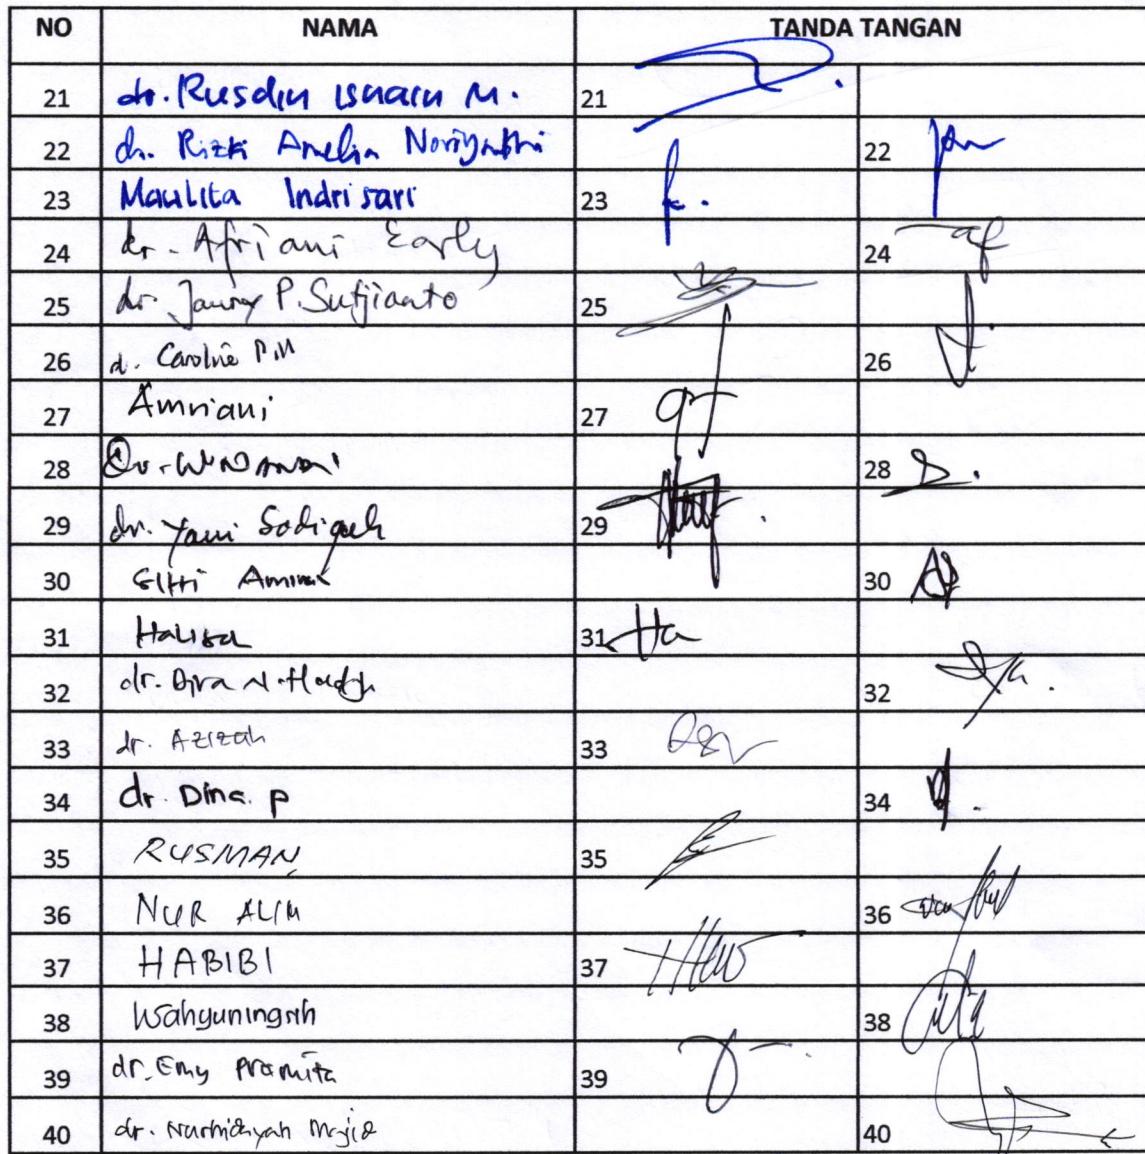 NO NAMA TANDA TANGAN
21 dr. Rusdin Ismain M. 21
22 dr. Rizki Amelia 22
23 Maulita Indrisari 23
24 dr. Afriani Early 24
25 dr P. Sutjianto 25
26 d. Caroline P.M 26
27 Amriani 27
28 28
29 dr. Yani Sodiqah 29
30 Sitti Amina 30
31 Halisa 31
32 dr. 32
33 dr. Azizah 33
34 dr. Dina. P 34
35 RUSMAN 35
36 NUR ALIM 36
37 HABIBI 37
38 Wahyuningsih 38
39 dr. Emy Pramita 39
40 dr. Nurhidayah Majid 40